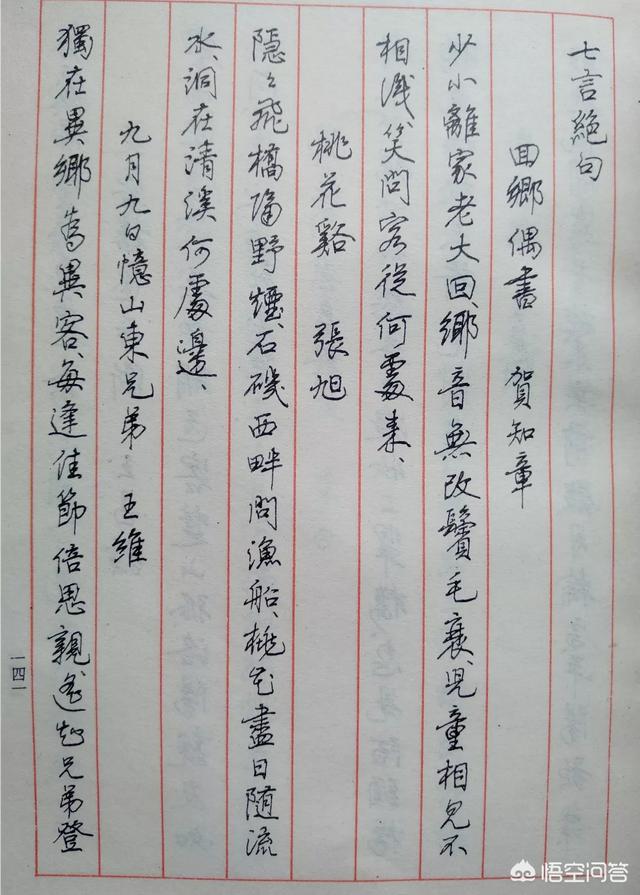 七言絕句
回鄉偶書 賀知章
少小離家老大回、鄉音無改鬢毛衰、兒童相見不
相識、笑問客從何處來、
桃花谿 張旭
隱々飛橋隔野煙、石磯西畔問漁船、桃花盡日随流
水、洞在清溪何處邊、
九月九日憶山東兄弟 王維
獨在異鄉為異客、每逢佳節倍思親、遙知兄弟登
一四一
悟空问答